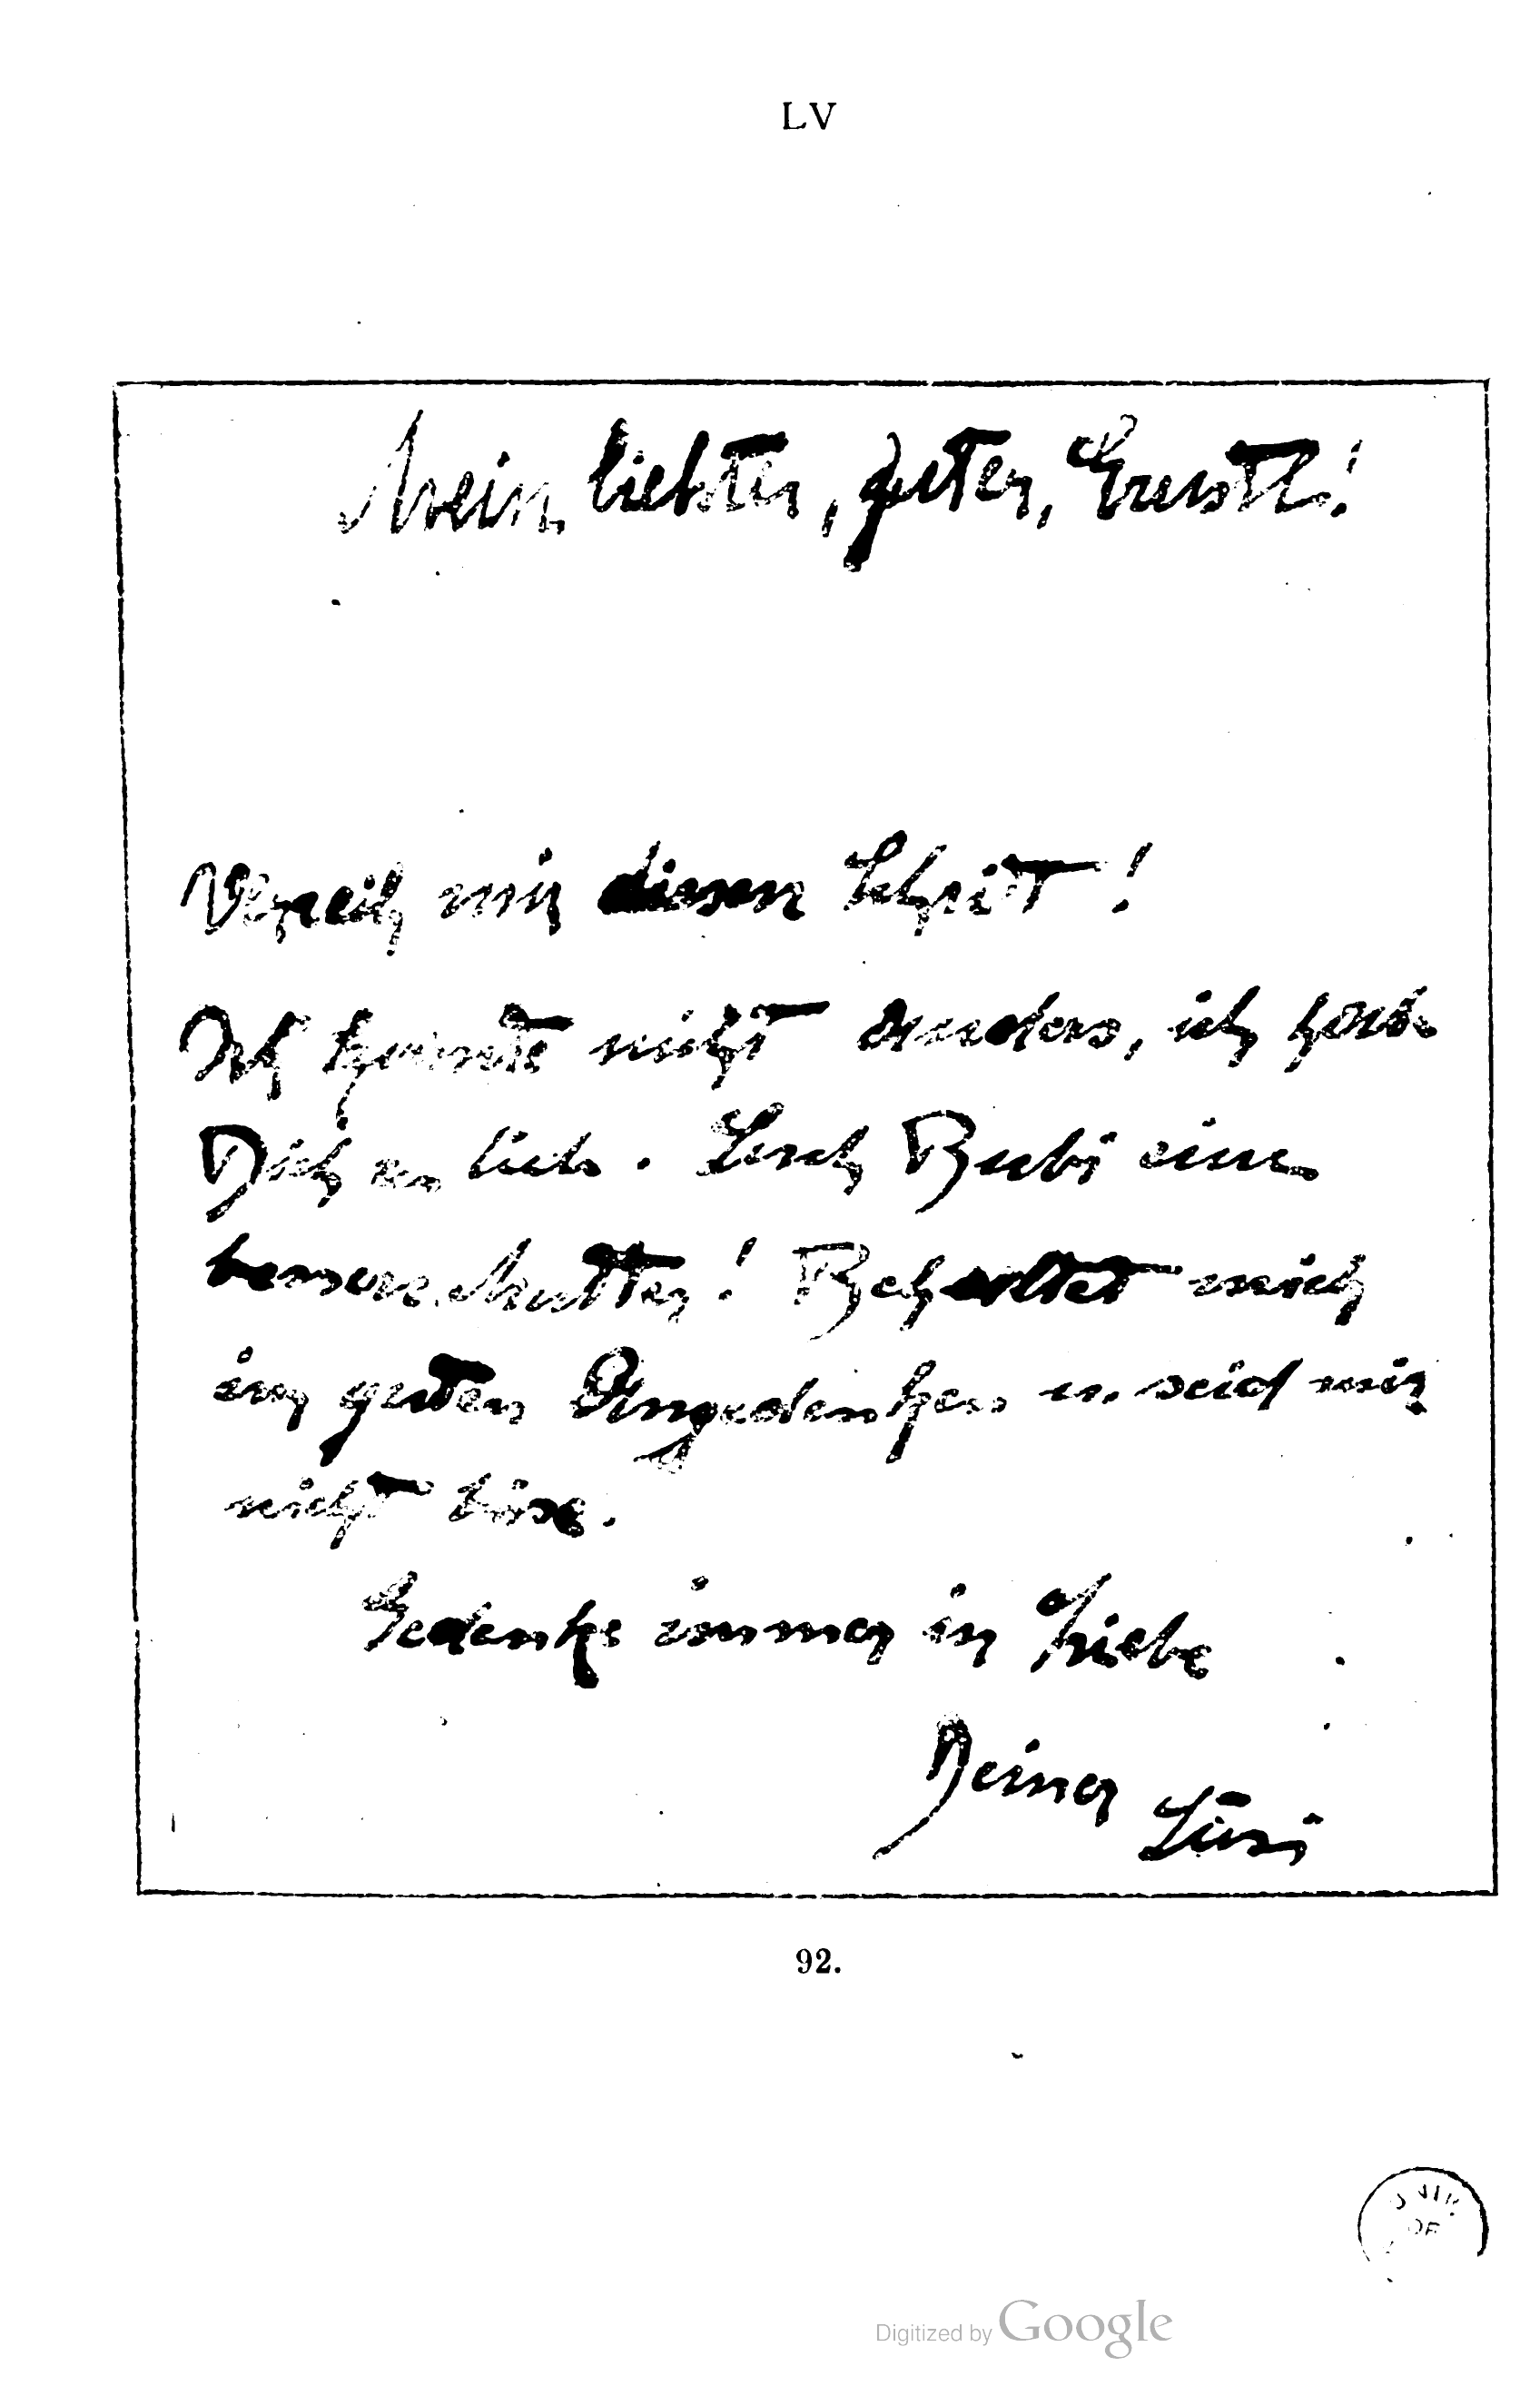 LV
Mein liebster, guter, Ernstl!
Verzeih mir diesen Schritt!
Ich konnte nicht anders, ich hab
Dich so lieb. Such Bubi eine
bessere Mutter! Behaltet mich
in guten Angedenken u. seid mir
nicht böse.
Gedenke immer in Liebe
Deiner
92.
Digitized by Google